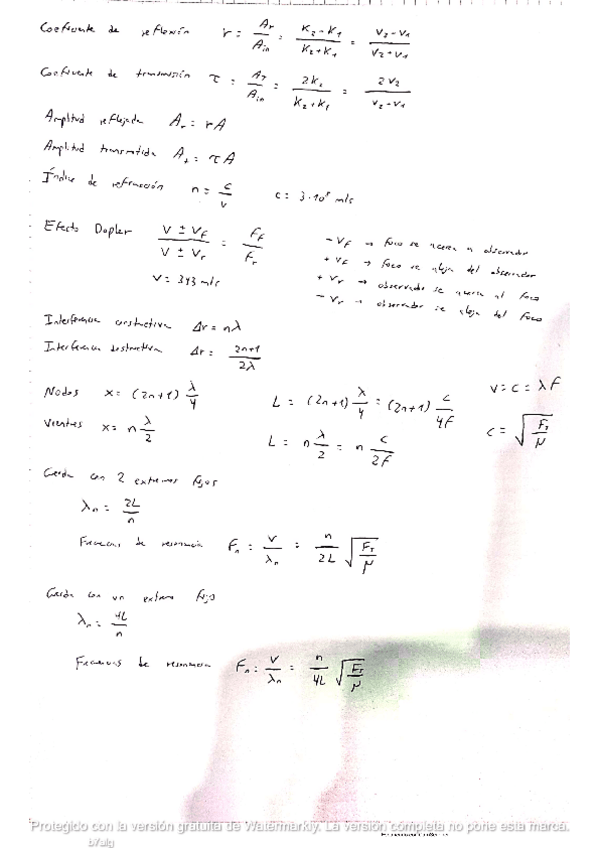 Coeficiente de reflexión r = Ar/Ain = K2-K1/K2+K1 = V2-V1/V2+V1
Coeficiente de transmisión τ = AT/Ain = 2K1/K2+K1 = 2V2/V2-V1
Amplitud reflejada Ar = rA
Amplitud transmitida At = τA
Índice de refracción n = c/v c = 3·10⁸ m/s
Efecto Dopler V ± VF / V ± Vr = FF/Fr
V = 343 m/s
- VF → Foco se acerca a observador
+ VF → Foco se aleja del observador
+ Vr → observador se acerca al foco
- Vr → observador se aleja del foco
Interferencia constructiva Δr = nλ
Interferencia destructiva Δr = 2n+1/2λ
Nodos x = (2n+1) λ/4 L = (2n+1) λ/4 = (2n+1) c/4F V = c = λF
Vientres x = n λ/2 L = n λ/2 = n c/2F c = √FT/μ
Cuerda con 2 extremos fijos
λn = 2L/n
Frecuencias de resonancia Fn = V/λn = n/2L √FT/μ
Cuerda con un extremo fijo
λn = 4L/n
Frecuencias de resonancia Fn = V/λn = n/4L √FT/μ
Protegido con la versión gratuita de Watermarkly. La versión completa no pone esta marca.